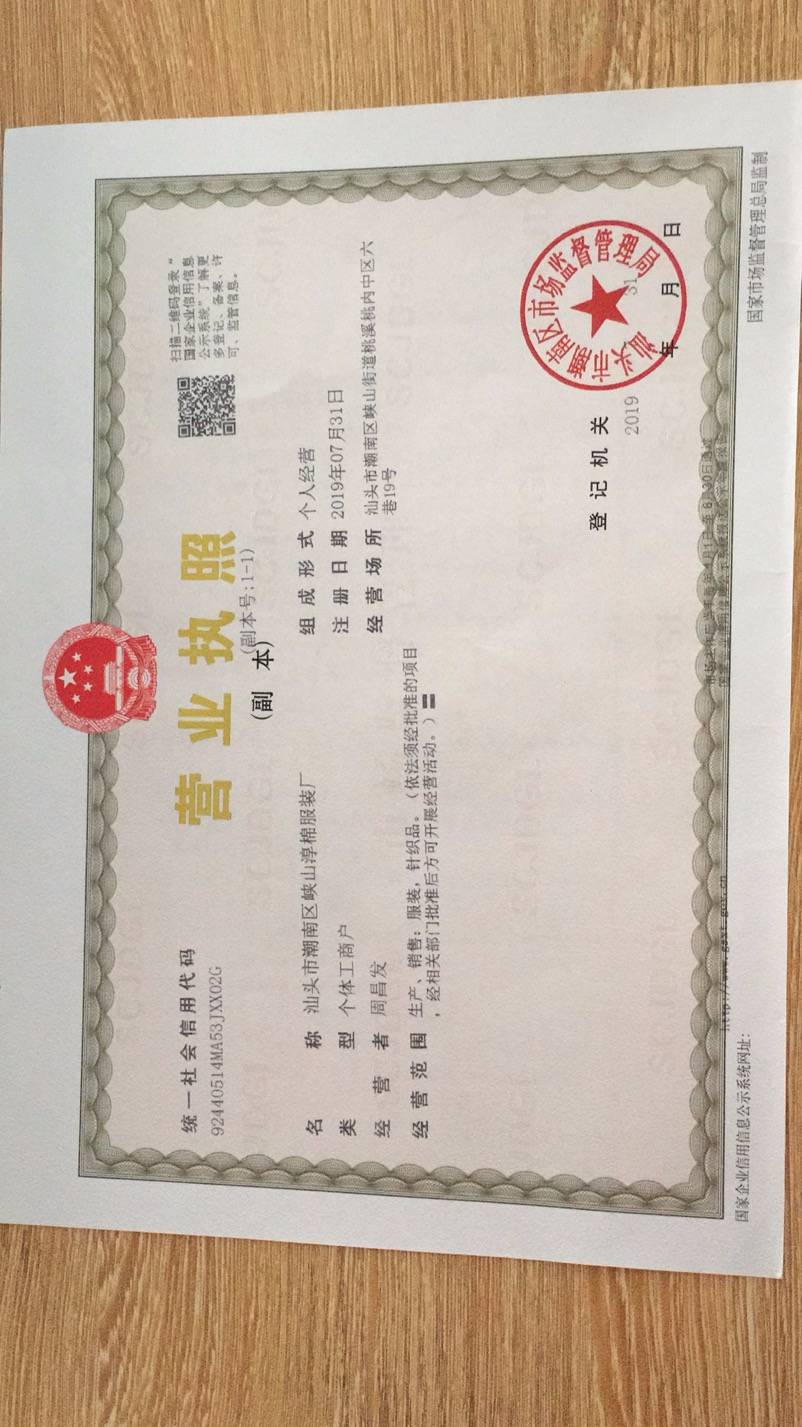 统一社会信用代码
92440514MA53JXX02G
营业执照
(副 本)
(副本号:1-1)
扫描二维码登录“
国家企业信用信息
公示系统”了解更
多登记、备案、许
可、监管信息。
名 称 汕头市潮南区峡山淳棉服装厂
类 型 个体工商户
经 营 者 周昌发
经 营 范 围 生产、销售:服装,针织品。(依法须经批准的项目
,经相关部门批准后方可开展经营活动。)
组 成 形 式 个人经营
注 册 日 期 2019年07月31日
经 营 场 所 汕头市潮南区峡山街道桃溪桃内中区六
巷19号
登 记 机 关
汕头市潮南区市场监督管理局
2019 年 月 31 日
国家企业信用信息公示系统网址:
http://www.gsxt.gov.cn
国家市场监督管理总局监制